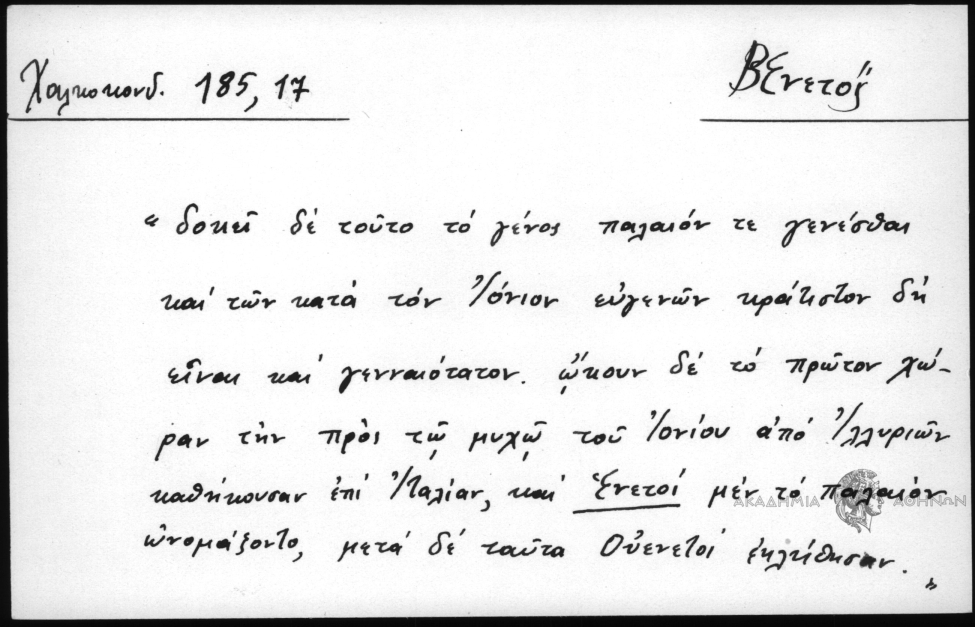 Χαλκοκονδ. 185, 17
Βενετοί
“ δοκεῖ δέ τοῦτο τό γένος παλαιόν τε γενέσθαι
καί τῶν κατά τόν Ἰόνιον εὐγενῶν κράτιστον δή
εἶναι καί γενναιότατον. ᾤκουν δέ τό πρῶτον χώ-
ραν τήν πρός τῷ μυχῷ τοῦ Ἰονίου ἀπό Ἰλλυριῶν
καθήκουσαν ἐπί Ἰταλίαν, καί Ἑνετοί μέν τό παλαιόν
ὠνομάζοντο, μετά δέ ταῦτα Οὐενετοί ἐκλήθησαν. ”
ΑΚΑΔΗΜΙΑ ΑΘΗΝΩΝ